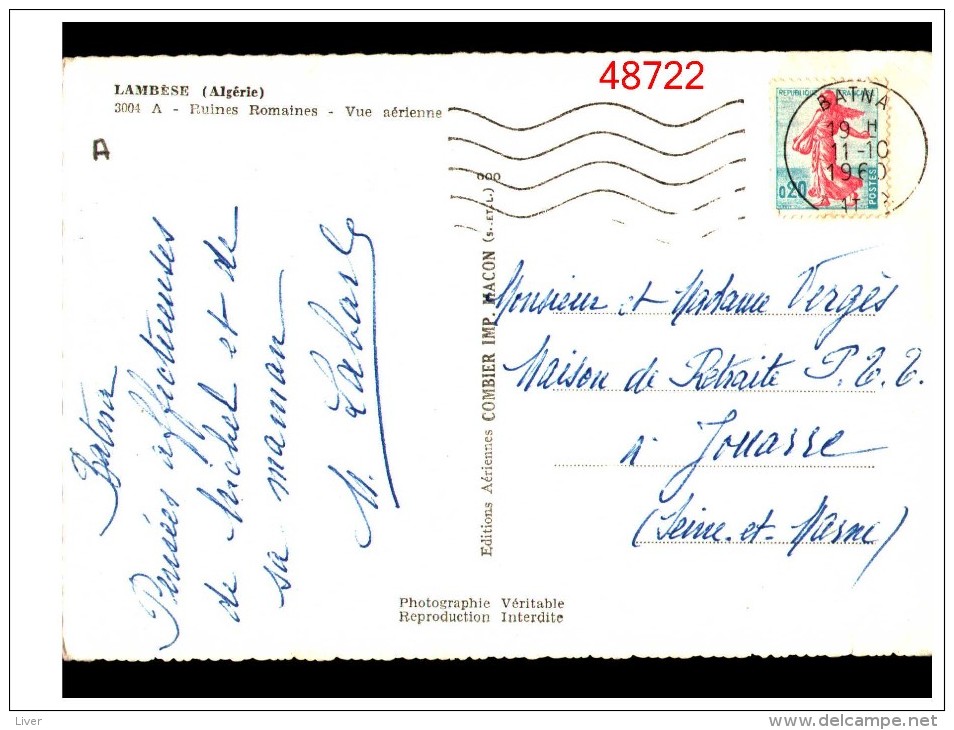 48722
LAMBÈSE (Algérie)
3004 A - Ruines Romaines - Vue aérienne
A
REPUBLIQUE FRANÇAISE
0,20
POSTES
BATNA
19 H
11-10
1960
Batna
Pensées affectueuses
de Michel et de
sa maman
M.
Editions Aériennes COMBIER IMP. MACON (S.-ET-L.)
Monsieur et Madame Vergès
Maison de Retraite P.T.T.
à Jouarre
(Seine-et-Marne)
Photographie Véritable
Reproduction Interdite
Liver
delcampe.net